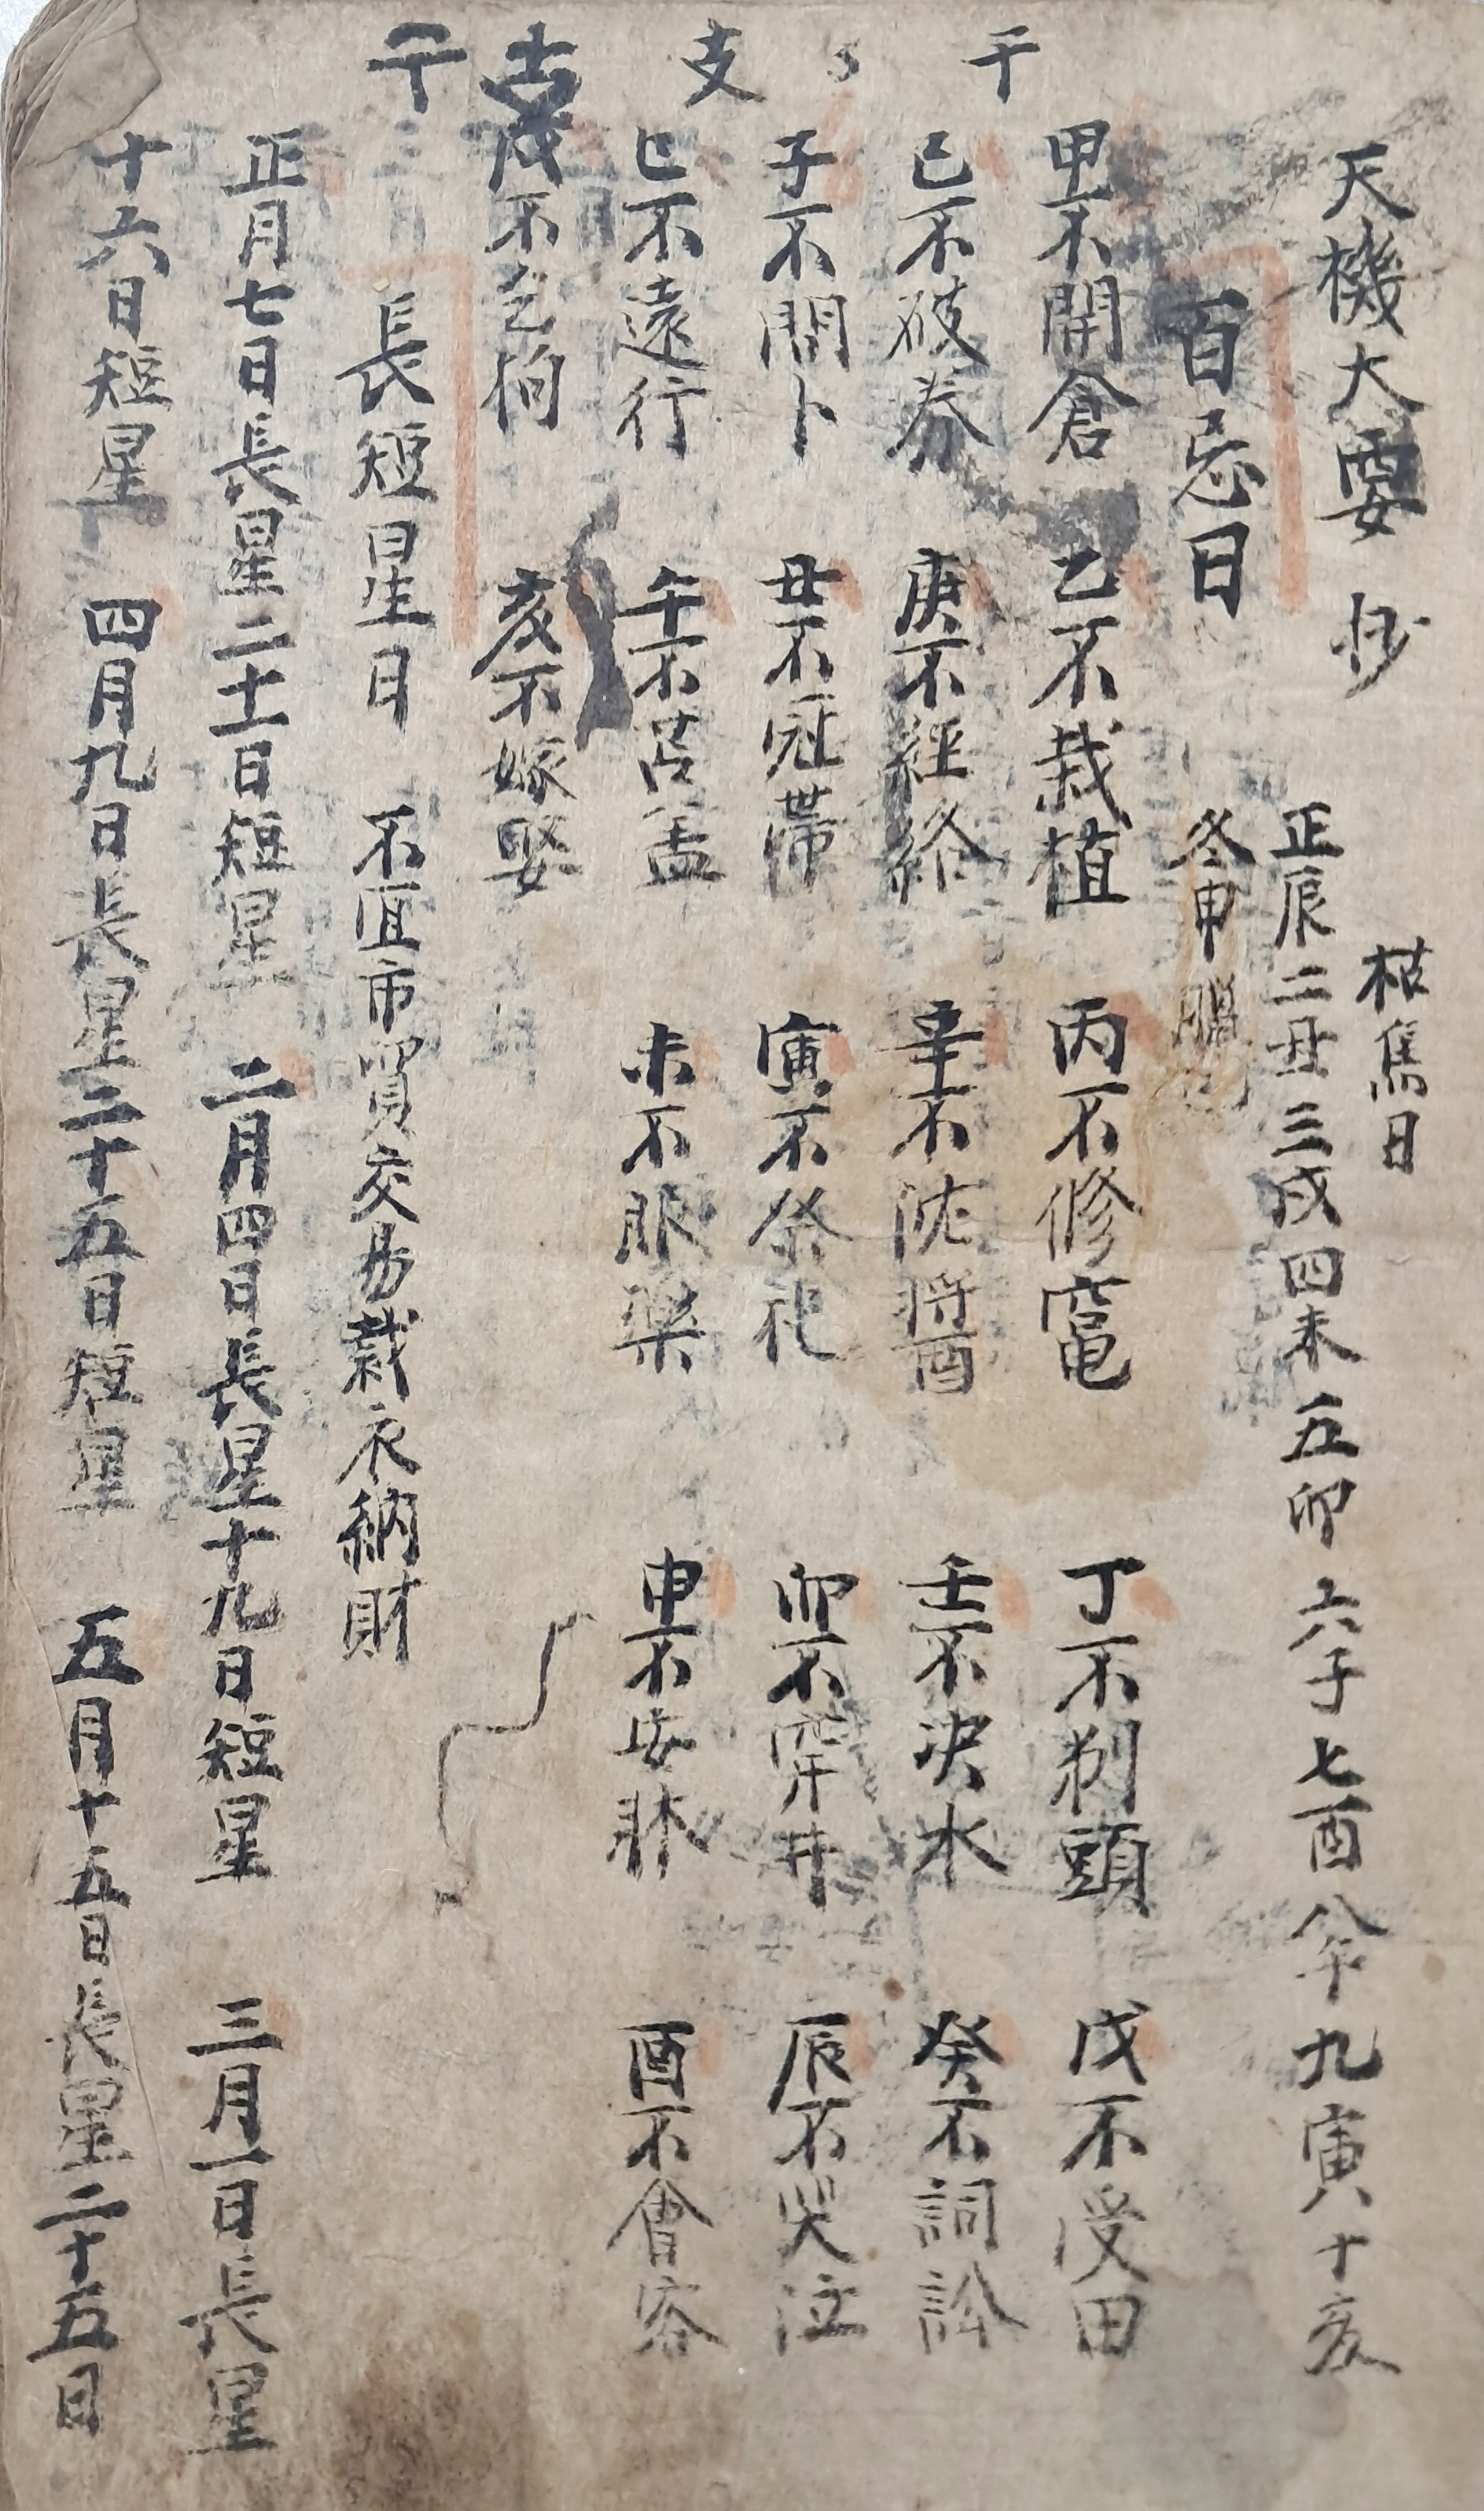 干 支 支 干
天機大要 抄
枯焦日
正辰二丑三戌四未五卯六子七酉八午九寅十亥
冬申臘巳
百忌日
甲不開倉 乙不栽植 丙不修竈 丁不剃頭 戊不受田
己不破券 庚不經絡 辛不沈醬 壬不決水 癸不詞訟
子不問卜 丑不冠帶 寅不祭祀 卯不穿井 辰不哭泣
巳不遠行 午不苫盖 未不服藥 申不安牀 酉不會客
戌不乞狗 亥不嫁娶
長短星日 不宜市買交易裁衣納財
正月七日長星二十一日短星 二月四日長星十九日短星 三月一日長星
十六日短星 四月九日長星二十五日短星 五月十五日長星二十五日